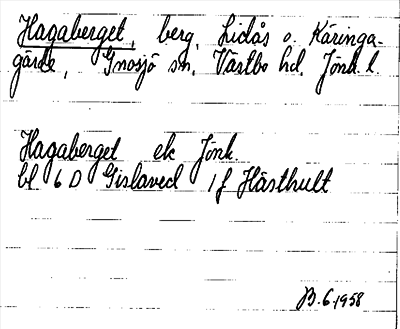 Hagaberget, berg, Lidås o. Käringa-
gärde, Gnosjö sn, Västbo hd. Jönk. l.
Hagaberget ek Jönk.
bl. 6 D Gislaved 1 f Hästhult
B. 6 1958